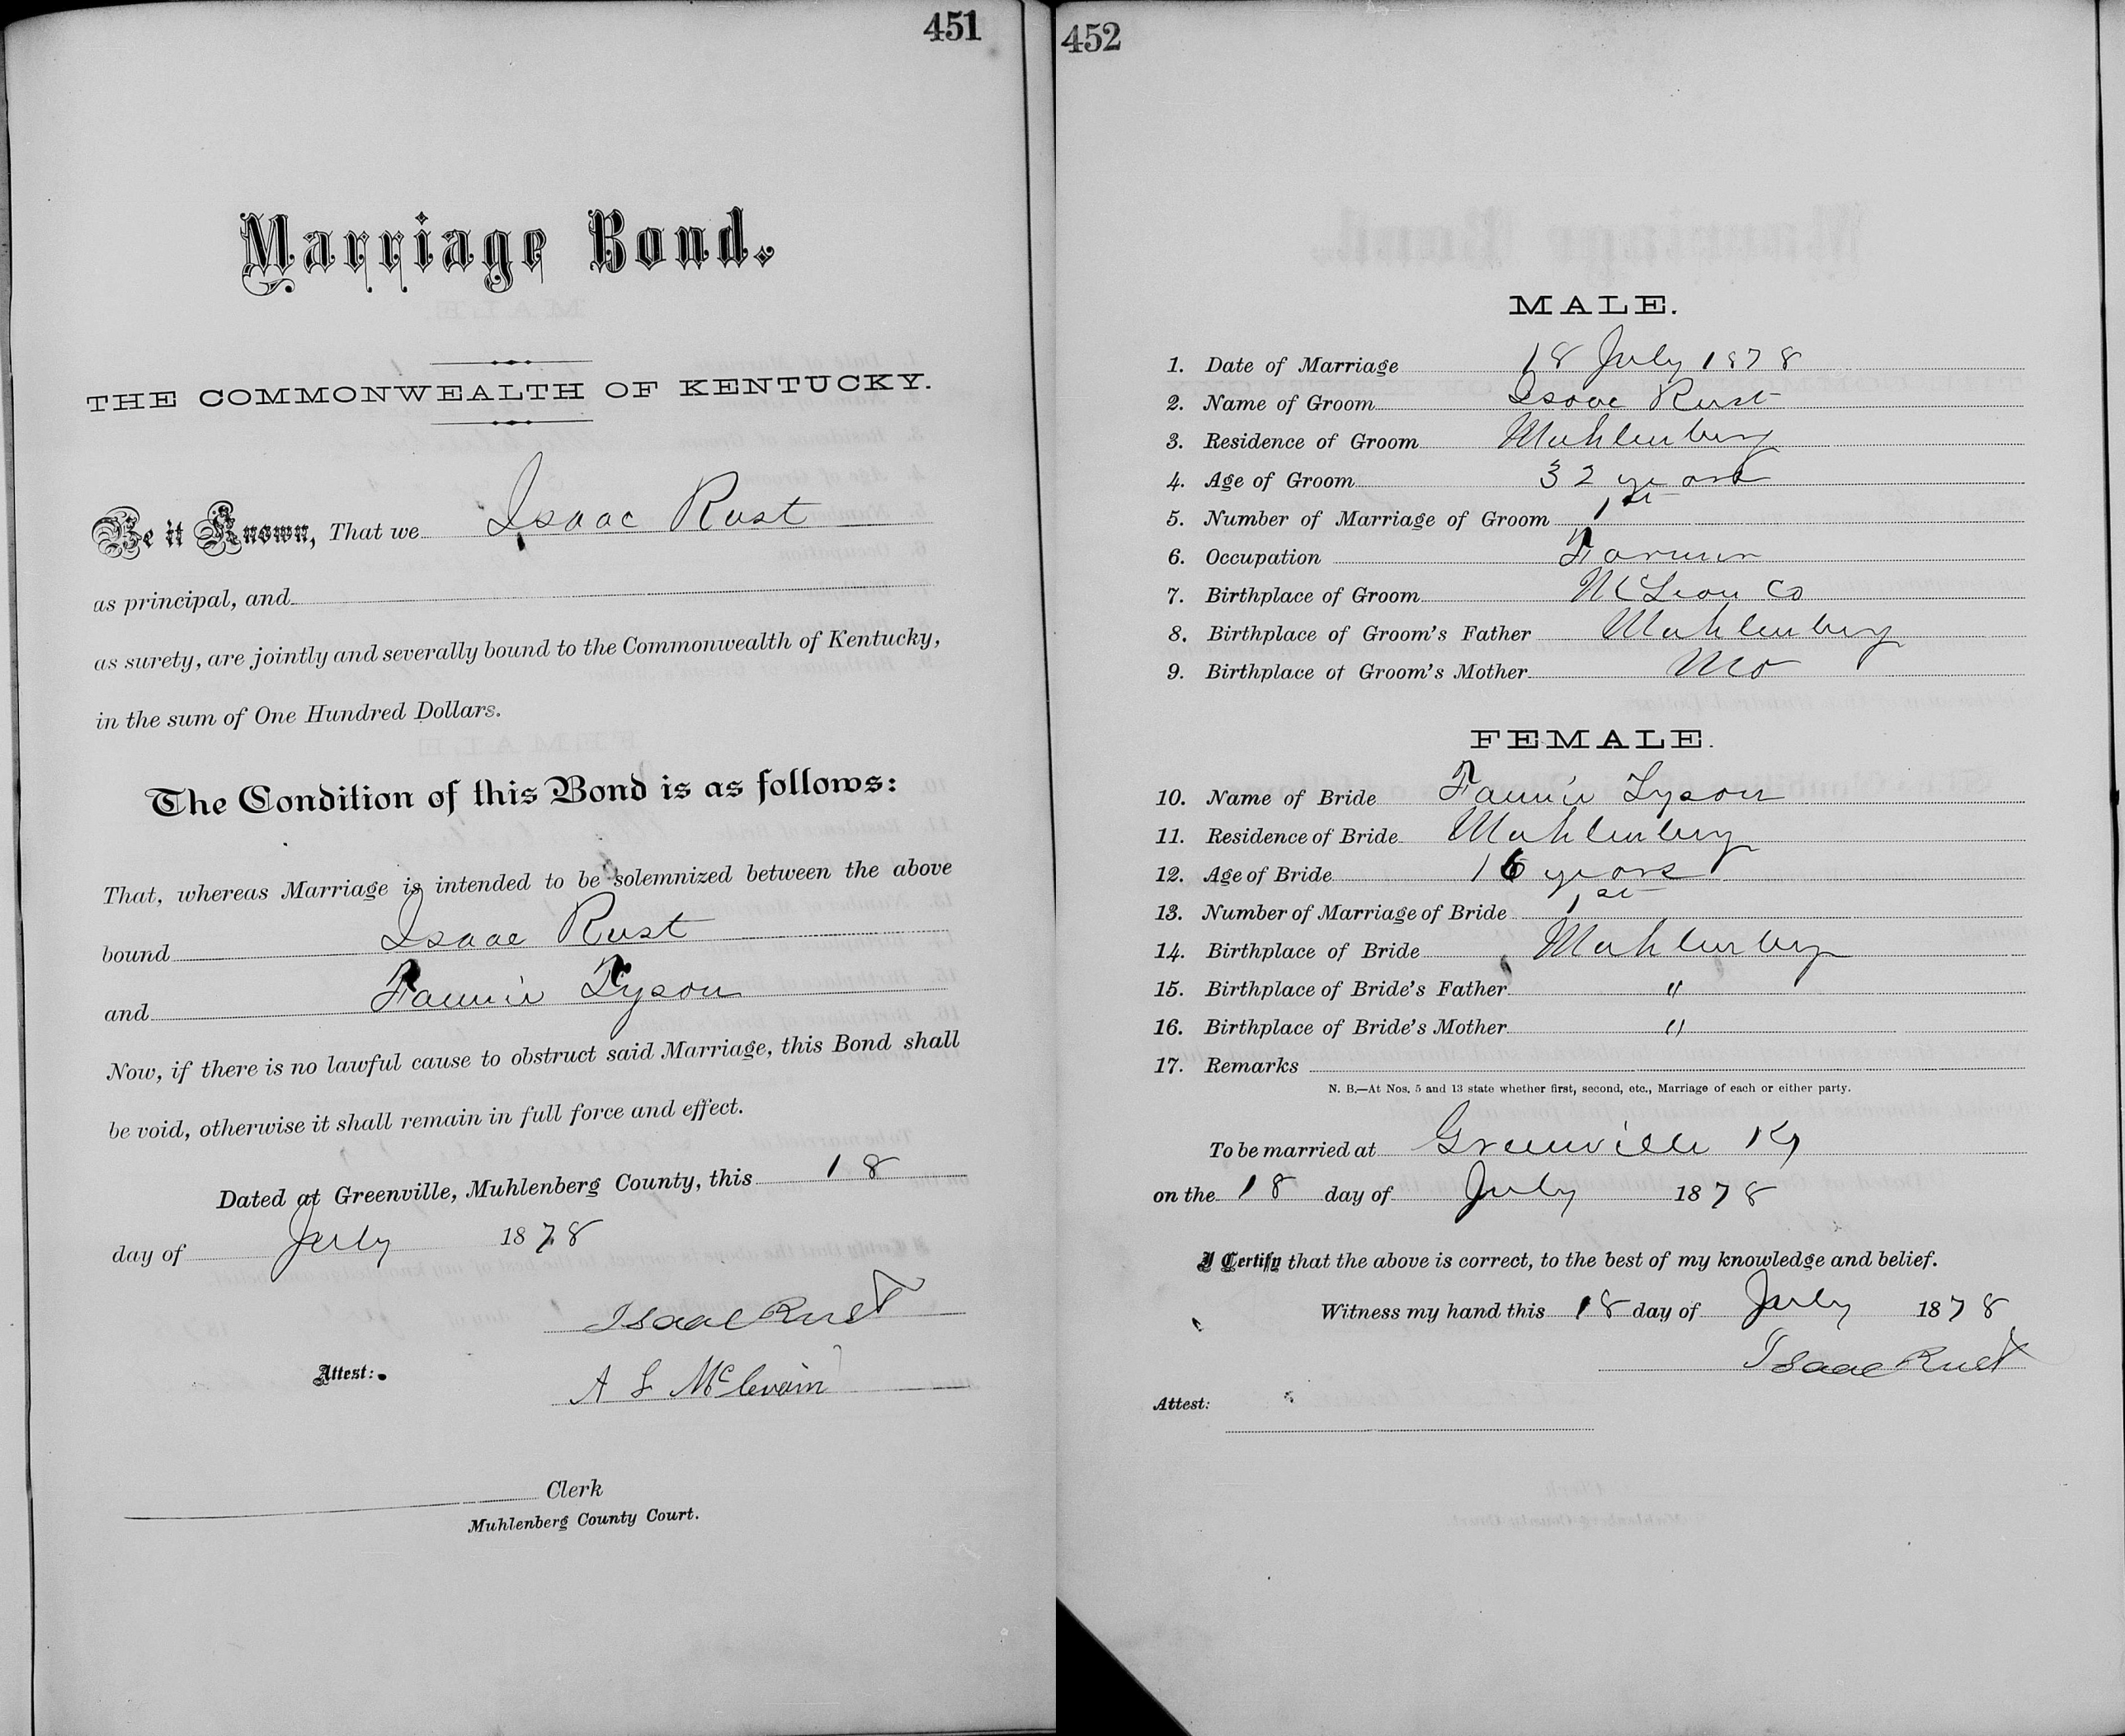 451
Marriage Bond.
THE COMMONWEALTH OF KENTUCKY.
Be it Known, That we Isaac Rust
as principal, and
as surety, are jointly and severally bound to the Commonwealth of Kentucky,
in the sum of One Hundred Dollars.
The Condition of this Bond is as follows:
That, whereas Marriage is intended to be solemnized between the above
bound Isaac Rust
and Fannie Tyson
Now, if there is no lawful cause to obstruct said Marriage, this Bond shall
be void, otherwise it shall remain in full force and effect.
Dated at Greenville, Muhlenberg County, this 18
day of July 1878
Isaac Rust
Attest: A L McLevain
Clerk
Muhlenberg County Court.
452
MALE.
1. Date of Marriage 18 July 1878
2. Name of Groom Isaac Rust
3. Residence of Groom Muhlenberg
4. Age of Groom 32 years
5. Number of Marriage of Groom 1st
6. Occupation Farmer
7. Birthplace of Groom McLean Co
8. Birthplace of Groom's Father Muhlenberg
9. Birthplace of Groom's Mother Mo
FEMALE.
10. Name of Bride Fannie Tyson
11. Residence of Bride Muhlenberg
12. Age of Bride 16 years
13. Number of Marriage of Bride 1st
14. Birthplace of Bride Muhlenberg
15. Birthplace of Bride's Father "
16. Birthplace of Bride's Mother "
17. Remarks
N. B.—At Nos. 5 and 13 state whether first, second, etc., Marriage of each or either party.
To be married at Greenville Ky
on the 18 day of July 1878
I Certify that the above is correct, to the best of my knowledge and belief.
Witness my hand this 18 day of July 1878
Isaac Rust
Attest: